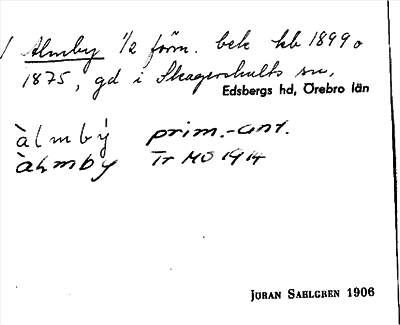 Almby 1/2 förm. bek kb 1899 o
1875, gd i Skagershults sn,
Edsbergs hd, Örebro län
àlmbẏ prim.-ant.
àʟmby Tr MÖ 1914
JÖRAN SAHLGREN 1906